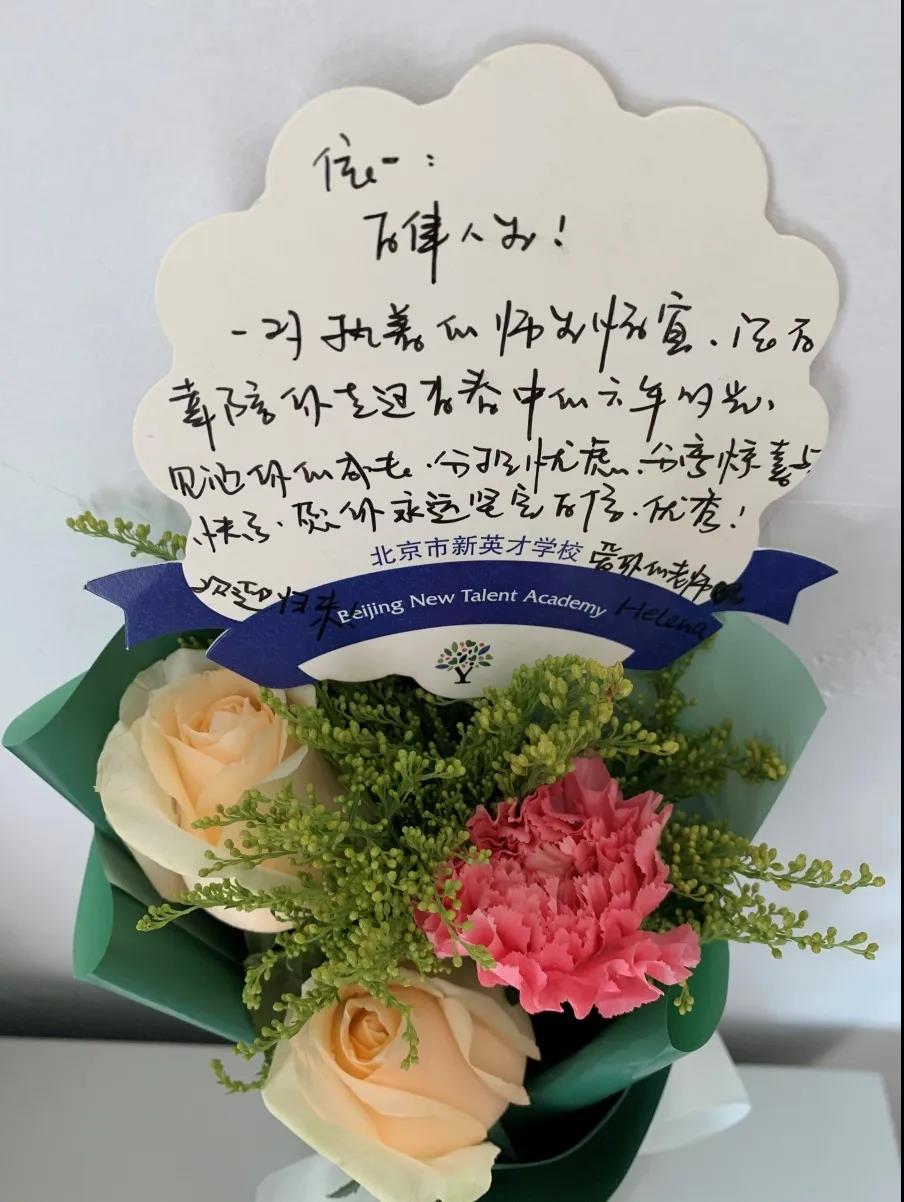 信一：
百年人才！
一对执着的师
陪你走过青春中的六年时光，
见证你的成长，分担忧虑，分享惊喜与
快乐，愿你永远坚定自信，优秀！
北京市新英才学校 爱你的老师
欢迎归来！
Beijing New Talent Academy Helena